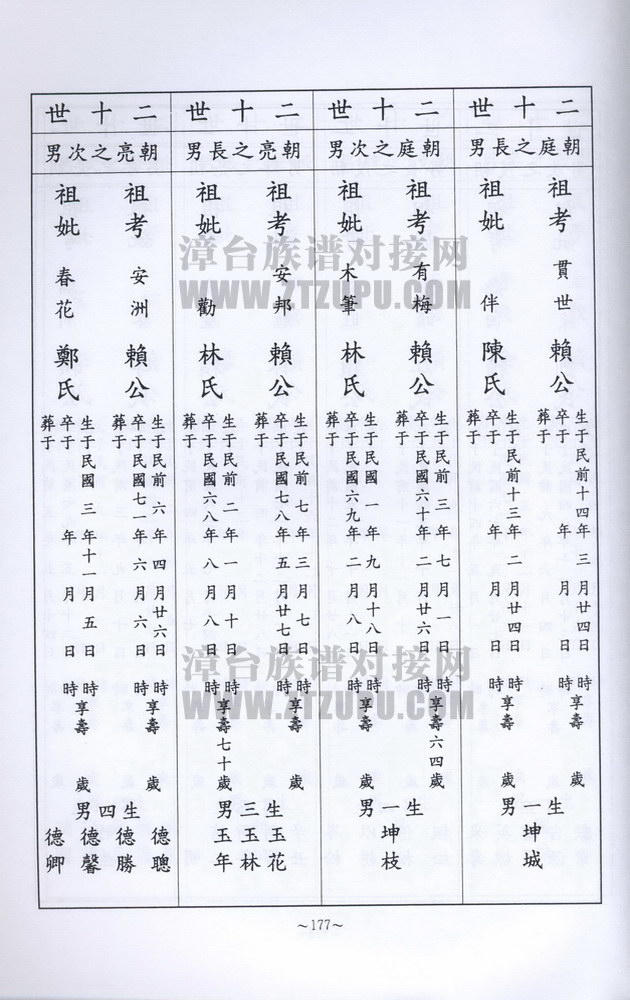 二十世
朝庭之長男
祖考 貫世 賴公
生于民前十四年三月廿四日 時享壽 歲
卒于 年 月 日 時
葬于
祖妣 伴 陳氏
生于民前十三年二月廿四日 時享壽 歲
卒于 年 月 日 時
葬于
生一男
坤城
二十世
朝庭之次男
祖考 有梅 賴公
生于民前三年七月一日 時享壽六四歲
卒于民國六十年二月廿六日 時
葬于
祖妣 木筆 林氏
生于民國一年九月十八日 時享壽
卒于民國六九年二月八日 時
葬于
生一男
坤枝
二十世
朝亮之長男
祖考 安邦 賴公
生于民前七年三月七日 時享壽 歲
卒于民國七八年五月廿七日 時
葬于
祖妣 勸 林氏
生于民前二年一月十日 時享壽七十歲
卒于民國六八年八月八日 時
葬于
生三男
玉花
玉林
玉年
二十世
朝亮之次男
祖考 安洲 賴公
生于民前六年四月廿六日 時享壽 歲
卒于民國七一年六月六日 時
葬于
祖妣 春花 鄭氏
生于民國三年十一月五日 時享壽 歲
卒于 年 月 日 時
葬于
生四男
德聰
德勝
德馨
德卿
~177~
漳台族谱对接网
WWW.ZTZUPU.COM
漳台族谱对接网
WWW.ZTZUPU.COM